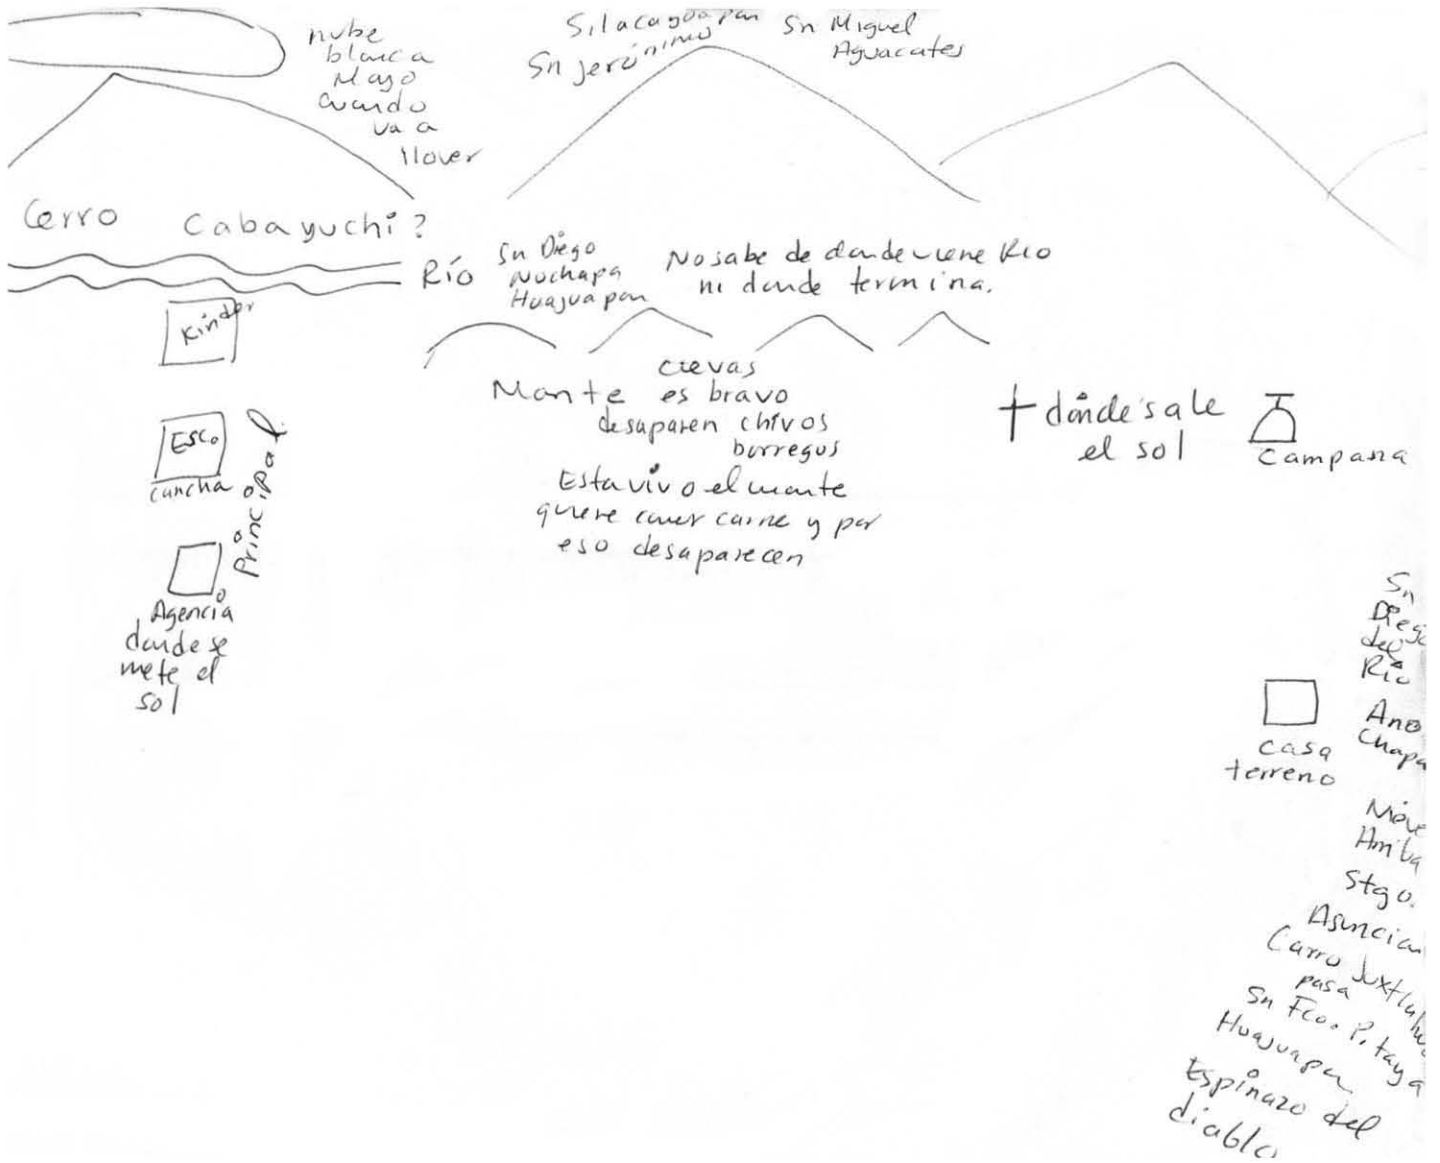 nube
blanca
Mayo
cuando
va a
llover
Silacayoapan
Sn Jerónimo
Sn Miguel
Aguacates
Cerro Cabayuchi?
Río
Sn Diego
Nuchapa
Huajuapan
No sabe de donde viene Rio
ni donde termina.
Kinder
Esc.
cancha
Principal
Agencia
donde se
mete el
sol
cuevas
Monte es bravo
desaparen chivos
borregos
Esta vivo el monte
quiere comer carne y por
eso desaparecen
donde sale
el sol
Campana
casa
terreno
Sn
Diego
del
Rio
Ano
Chapa
Arriba
Stgo.
Asuncion
Carro Juxtlahu
pasa
Sn Fco. Pitaya
Huajuapan
Espinazo del
diablo